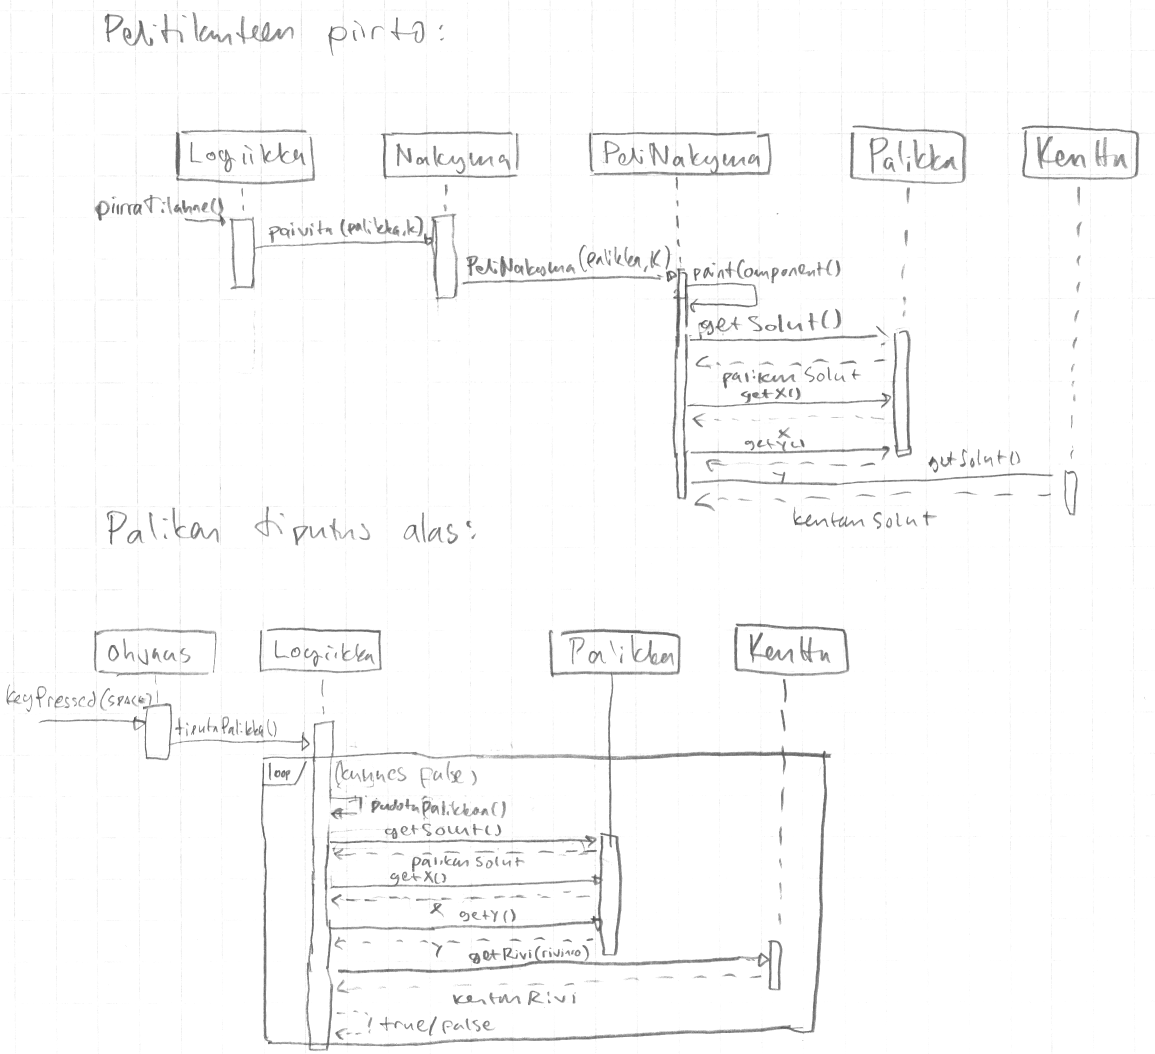 Pelitilanteen piirto:
Logiikka
Nakyma
PeliNakyma
Palikka
Kentta
piirraTilanne()
paivita(palikka,k)
PeliNakyma(palikka,k)
paintComponent()
getSolut()
palikan Solut
getX()
X
getY()
Y
getSolut()
kentan Solut
Palikan tiputus alas:
Ohjaus
Logiikka
Palikka
Kentta
keyPressed(SPACE)
tiputaPalikka()
loop
false)
pudotaPalikkaa()
getSolut()
palikan Solut
getX()
X
getY()
Y
getRivi(rivino)
kentan Rivi
true/false